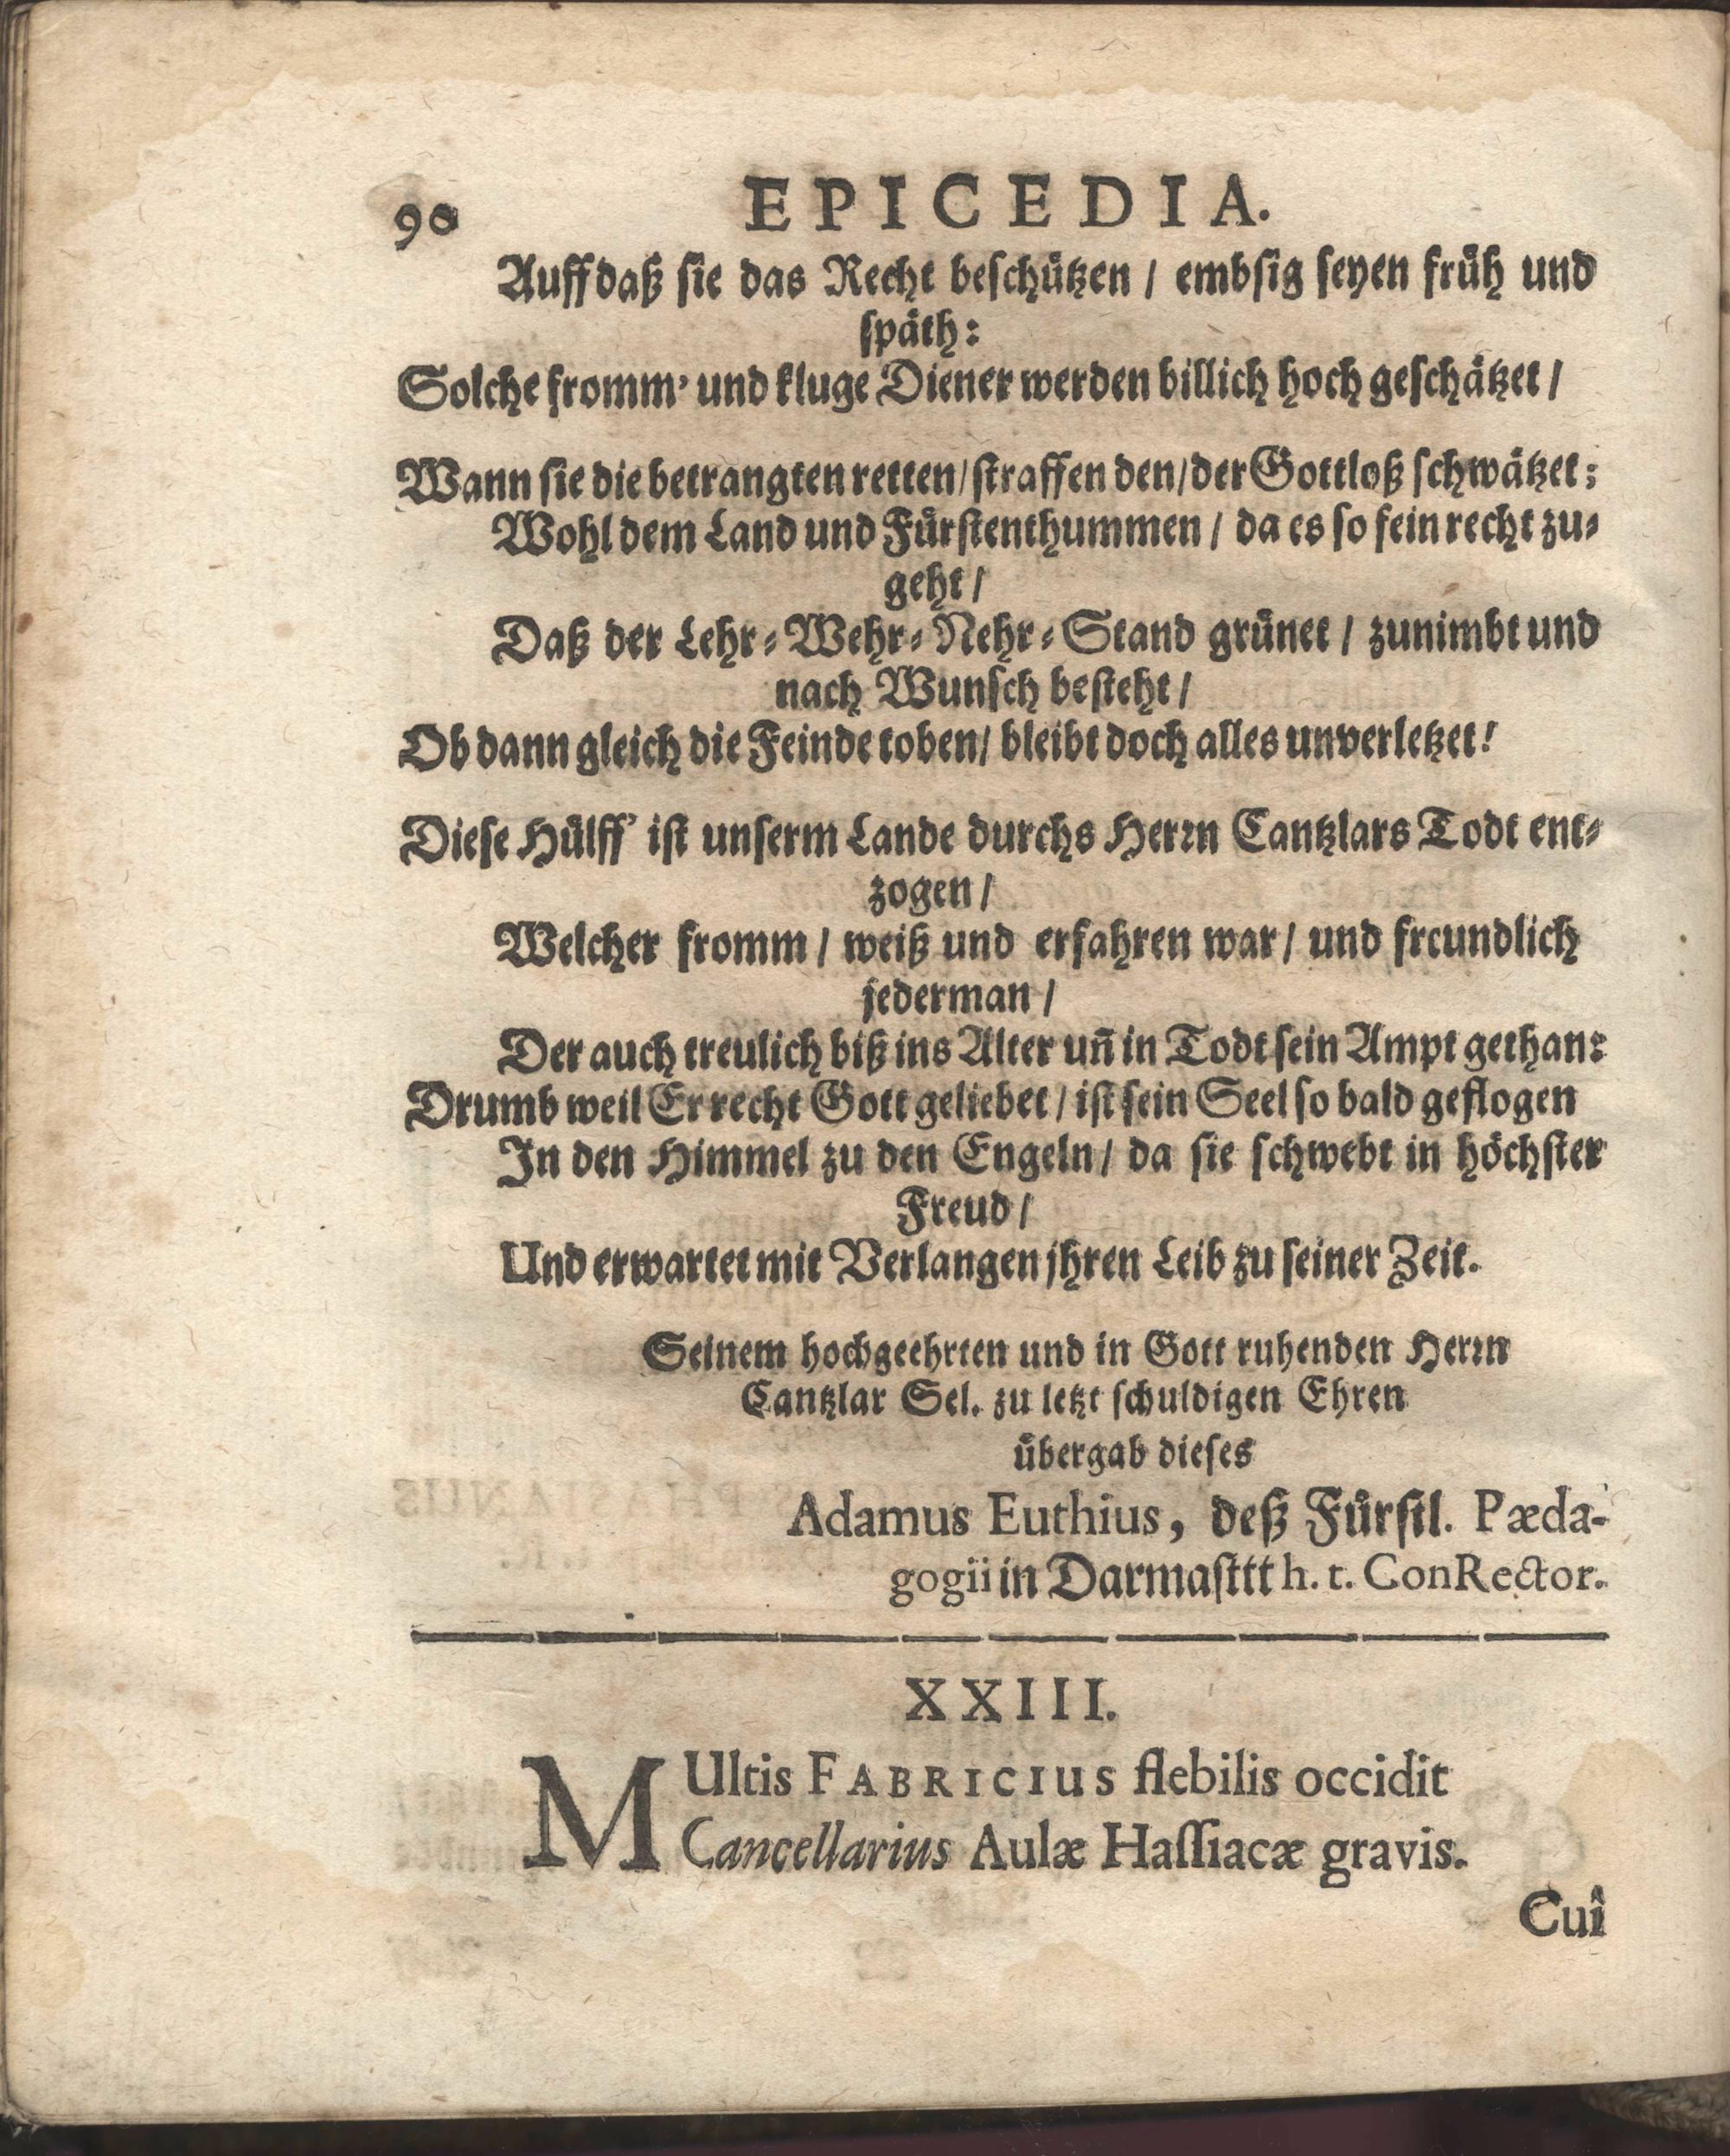 90
EPICEDIA.
Auff daß sie das Recht beschützen / embsig seyen früh und
späth:
Solche fromm' und kluge Diener werden billich hoch geschätzet /
Wann sie die betrangten retten / straffen den / der Gottloß schwätzet;
Wohl dem Land und Fürstenthummen / da es so fein recht zu-
geht /
Daß der Lehr-Wehr-Nehr-Stand grünet / zunimbt und
nach Wunsch besteht /
Ob dann gleich die Feinde toben / bleibt doch alles unverletzet!
Diese Hülff' ist unserm Lande durchs Herꝛn Cantzlars Todt ent-
zogen /
Welcher fromm / weiß und erfahren war / und freundlich
jederman /
Der auch treulich biß ins Alter un̄ in Todt sein Ampt gethan:
Drumb weil Er recht Gott geliebet / ist sein Seel so bald geflogen
In den Himmel zu den Engeln / da sie schwebt in höchster
Freud /
Und erwartet mit Verlangen jhren Leib zu seiner Zeit.
Seinem hochgeehrten und in Gott ruhenden Herꝛn
Cantzlar Sel. zu letzt schuldigen Ehren
übergab dieses
Adamus Euthius, deß Fürstl. Pæda-
gogii in Darmasttt h. t. ConRector.
XXIII.
MUltis FABRICIUS flebilis occidit
Cancellarius Aulæ Hassiacæ gravis.
Cuî